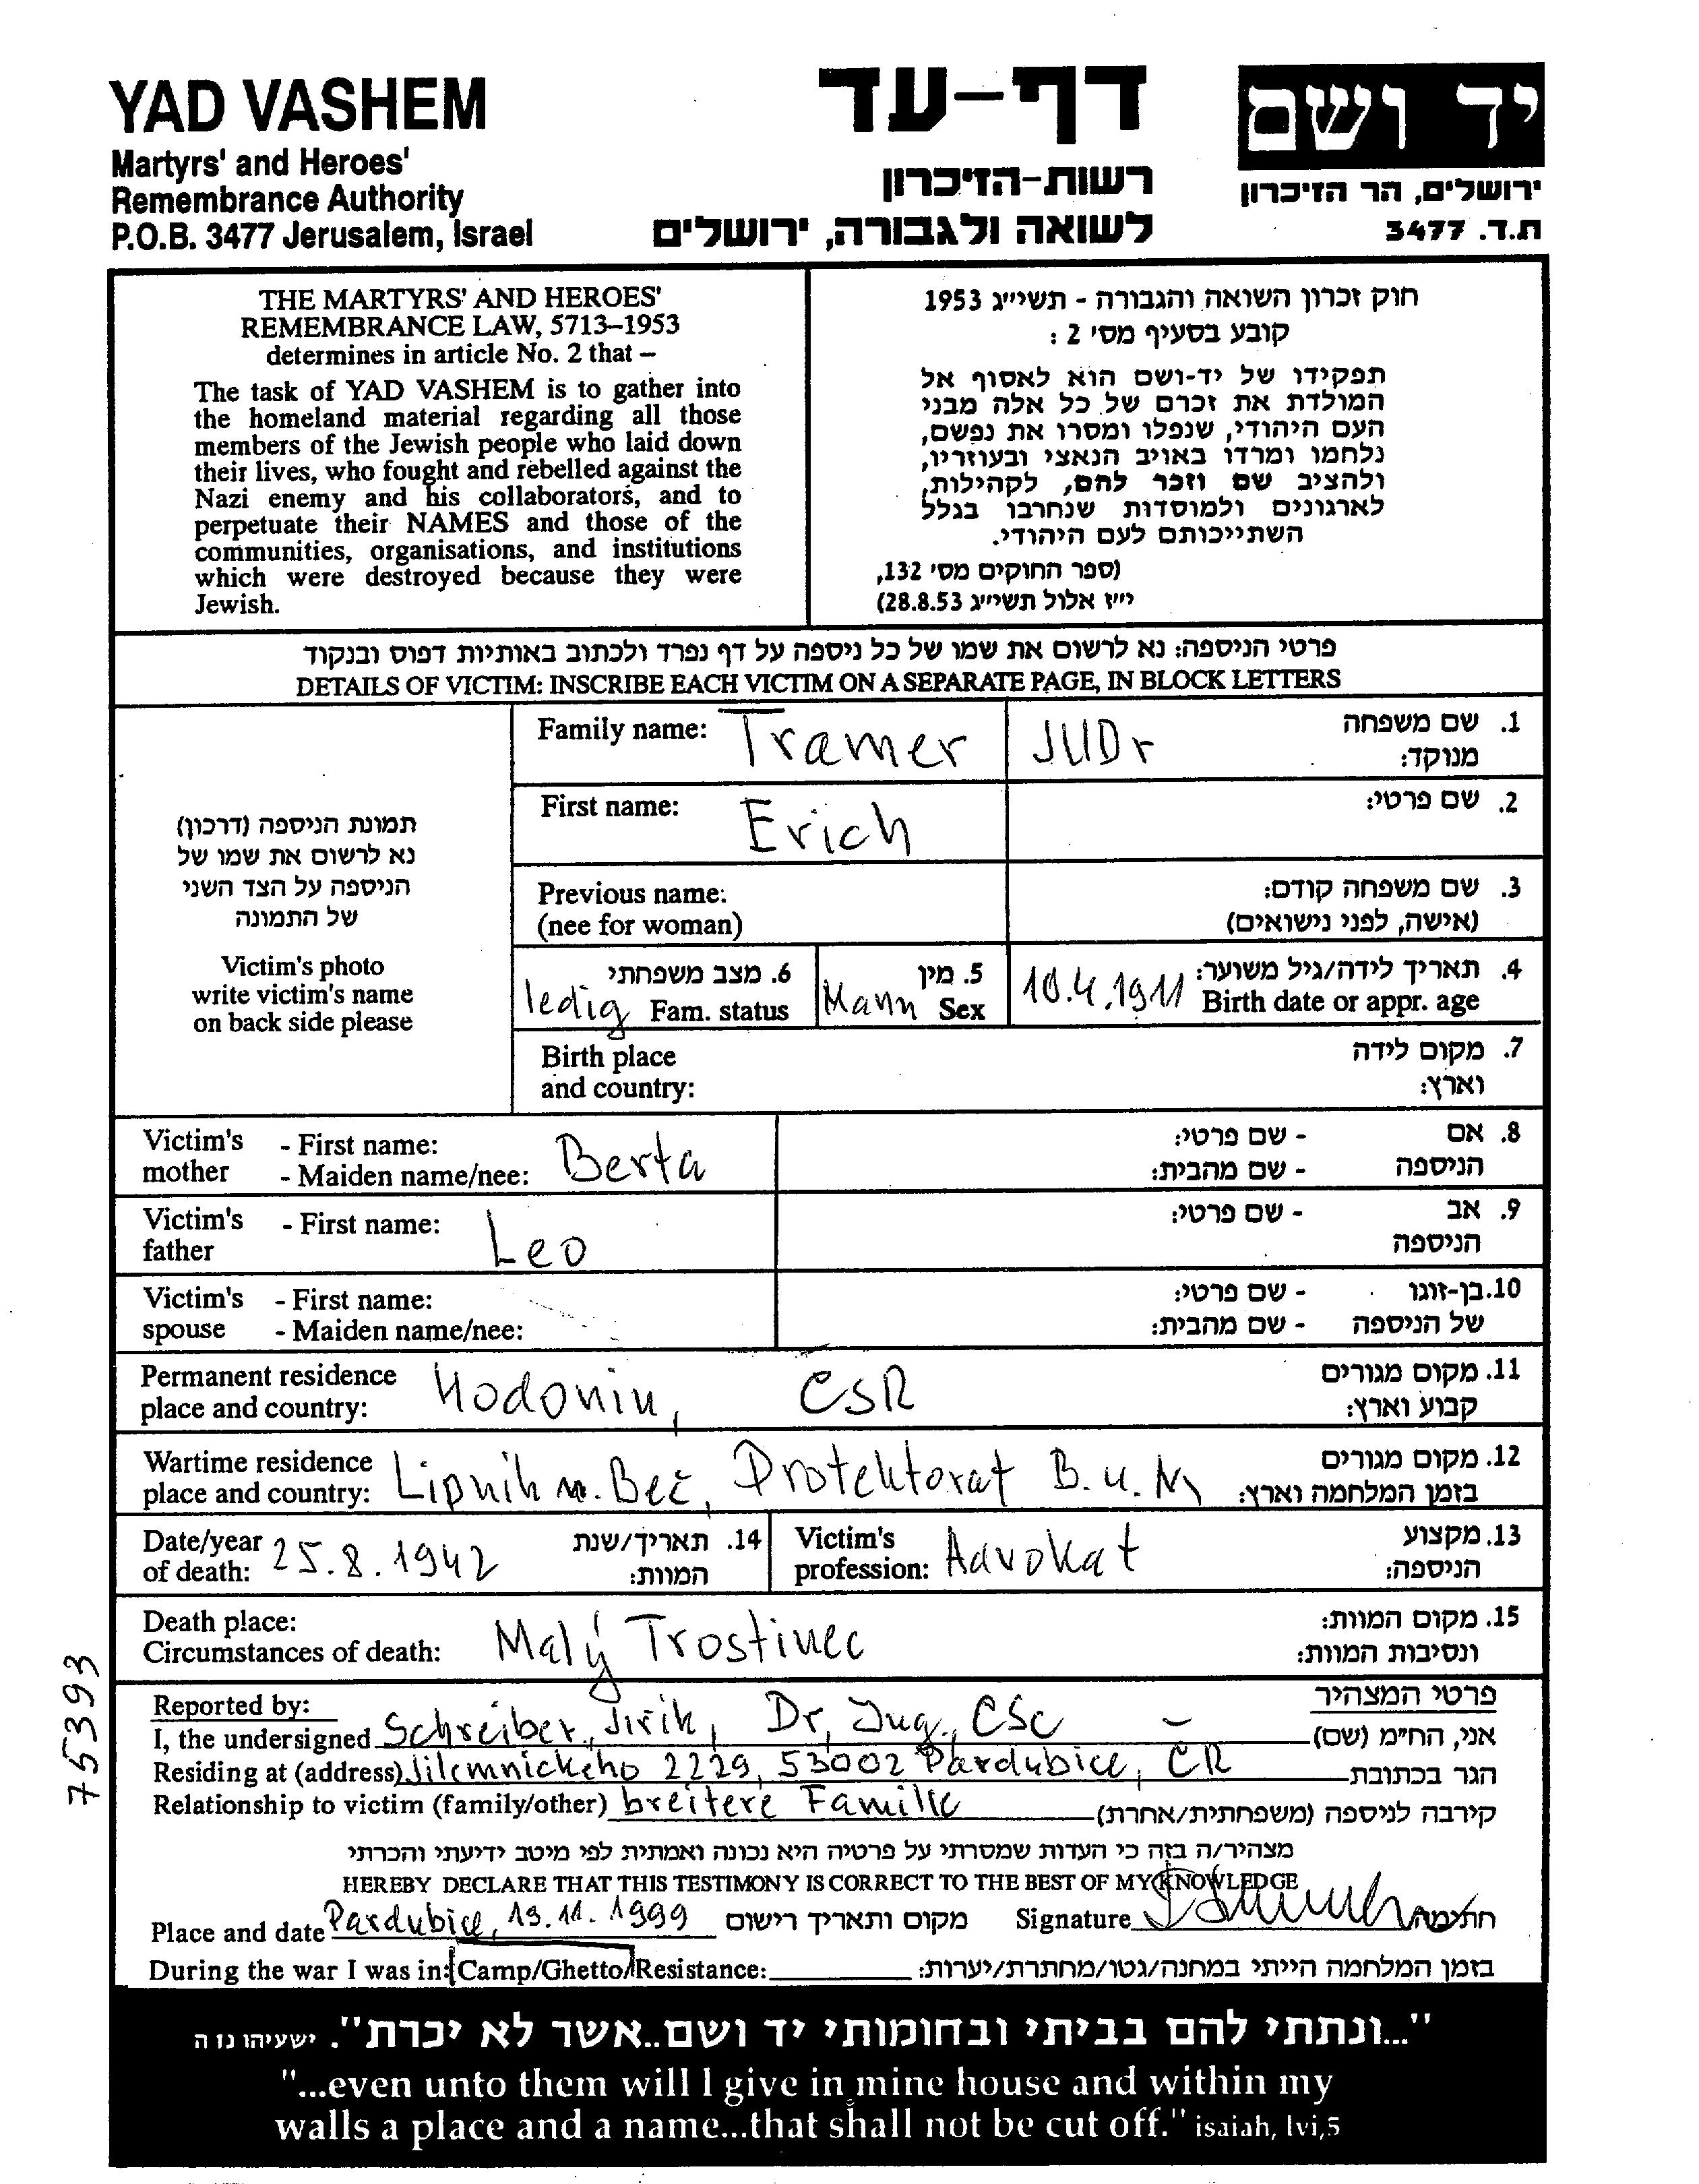 YAD VASHEM
Martyrs' and Heroes'
Remembrance Authority
P.O.B. 3477 Jerusalem, Israel
דף-עד
רשות-הזיכרון
לשואה ולגבורה, ירושלים
יד ושם
ירושלים, הר הזיכרון
ת.ד. 3477
THE MARTYRS' AND HEROES'
REMEMBRANCE LAW, 5713–1953
determines in article No. 2 that –
The task of YAD VASHEM is to gather into
the homeland material regarding all those
members of the Jewish people who laid down
their lives, who fought and rebelled against the
Nazi enemy and his collaborators, and to
perpetuate their NAMES and those of the
communities, organisations, and institutions
which were destroyed because they were
Jewish.
חוק זכרון השואה והגבורה - תשי״ג 1953
קובע בסעיף מס׳ 2 :
תפקידו של יד-ושם הוא לאסוף אל
המולדת את זכרם של כל אלה מבני
העם היהודי, שנפלו ומסרו את נפשם,
נלחמו ומרדו באויב הנאצי ובעוזריו,
ולהציב שם וזכר להם, לקהילות,
לארגונים ולמוסדות שנחרבו בגלל
השתייכותם לעם היהודי.
(ספר החוקים מס׳ 132,
י״ז אלול תשי״ג 28.8.53)
פרטי הניספה: נא לרשום את שמו של כל ניספה על דף נפרד ולכתוב באותיות דפוס ובנקוד
DETAILS OF VICTIM: INSCRIBE EACH VICTIM ON A SEPARATE PAGE, IN BLOCK LETTERS
תמונת הניספה (דרכון)
נא לרשום את שמו של
הניספה על הצד השני
של התמונה
Victim's photo
write victim's name
on back side please
Family name: Tramer JUDr 1. שם משפחה
מנוקד:
First name: Erich 2. שם פרטי:
Previous name: 3. שם משפחה קודם:
(nee for woman) (אישה, לפני נישואים)
6. מצב משפחתי 5. מין 4. תאריך לידה/גיל משוער:
ledig Fam. status Mann Sex 10.4.1911 Birth date or appr. age
Birth place 7. מקום לידה
and country: וארץ:
Victim's - First name: Berta 8. אם - שם פרטי:
mother - Maiden name/nee: הניספה - שם מהבית:
Victim's - First name: Leo 9. אב - שם פרטי:
father הניספה
Victim's - First name: 10. בן-זוגו - שם פרטי:
spouse - Maiden name/nee: של הניספה - שם מהבית:
Permanent residence 11. מקום מגורים
place and country: Hodonin, ČSR קבוע וארץ:
Wartime residence 12. מקום מגורים
place and country: Lipnik n. Beč, Protektorat B. u. M בזמן המלחמה וארץ:
Date/year 14. תאריך/שנת Victim's 13. מקצוע
of death: 25.8.1942 המוות: profession: Advokat הניספה:
Death place: 15. מקום המוות:
Circumstances of death: Malý Trostinec ונסיבות המוות:
Reported by: פרטי המצהיר
I, the undersigned Schreiber, Jirik, Dr, Ing., CSc אני, הח״מ (שם)
Residing at (address) Jilemnickeho 2229, 53002 Pardubice, CR הגר בכתובת
Relationship to victim (family/other) breitere Familie קירבה לניספה (משפחתית/אחרת)
מצהיר/ה בזה כי העדות שמסרתי על פרטיה היא נכונה ואמתית לפי מיטב ידיעתי והכרתי
HEREBY DECLARE THAT THIS TESTIMONY IS CORRECT TO THE BEST OF MY KNOWLEDGE
Place and date Pardubice, 19.11.1999 מקום ותאריך רישום Signature חתימה
During the war I was in: Camp/Ghetto/Resistance: בזמן המלחמה הייתי במחנה/גטו/מחתרת/יערות:
75393
"...ונתתי להם בביתי ובחומותי יד ושם..אשר לא יכרת". ישעיהו נו ה
"...even unto them will I give in mine house and within my
walls a place and a name...that shall not be cut off." isaiah, lvi,5